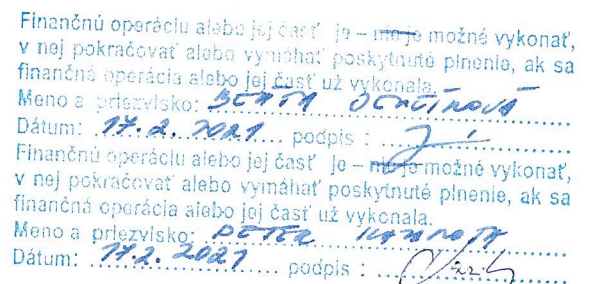 Finančnú operáciu alebo jej časť je – nie je možné vykonať,
v nej pokračovať alebo vymáhať poskytnuté plnenie, ak sa
finančná operácia alebo jej časť už vykonala.
Meno a priezvisko: BEÁTA
Dátum: 17.2.2021 podpis :
Finančnú operáciu alebo jej časť je – nie je možné vykonať,
v nej pokračovať alebo vymáhať poskytnuté plnenie, ak sa
finančná operácia alebo jej časť už vykonala.
Meno a priezvisko: PETER
Dátum: 17.2.2021 podpis :